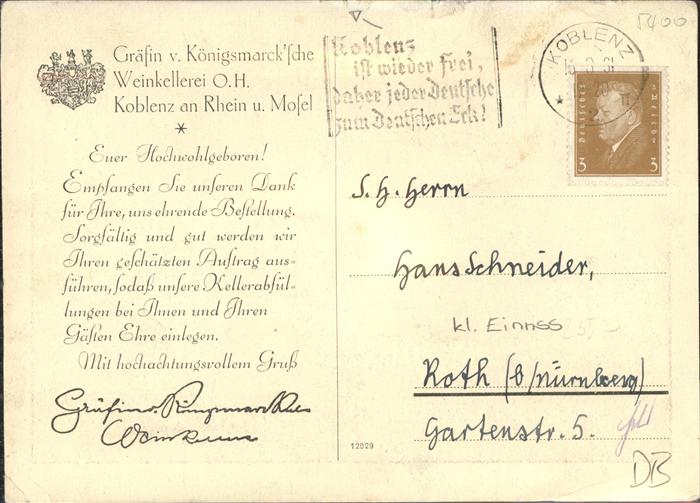 Gräfin v. Königsmarck'sche
Weinkellerei O.H.
Koblenz an Rhein u. Mosel
*
Euer Hochwohlgeboren!
Empfangen Sie unseren Dank
für Ihre, uns ehrende Bestellung.
Sorgfältig und gut werden wir
Ihren geschätzten Auftrag aus=
führen, sodaß unsere Kellerabfül=
lungen bei Ihnen und Ihren
Gästen Ehre einlegen.
Mit hochachtungsvollem Gruß
Gräfin v. Königsmarck'sche
Koblenz
ist wieder frei,
daher jeder Deutsche
zum Deutschen Eck!
KOBLENZ
Deutsches Reich
3 3
5400
S. H. Herrn
Hans Schneider,
Roth (b/Nürnberg)
Gartenstr. 5.
12029
DB